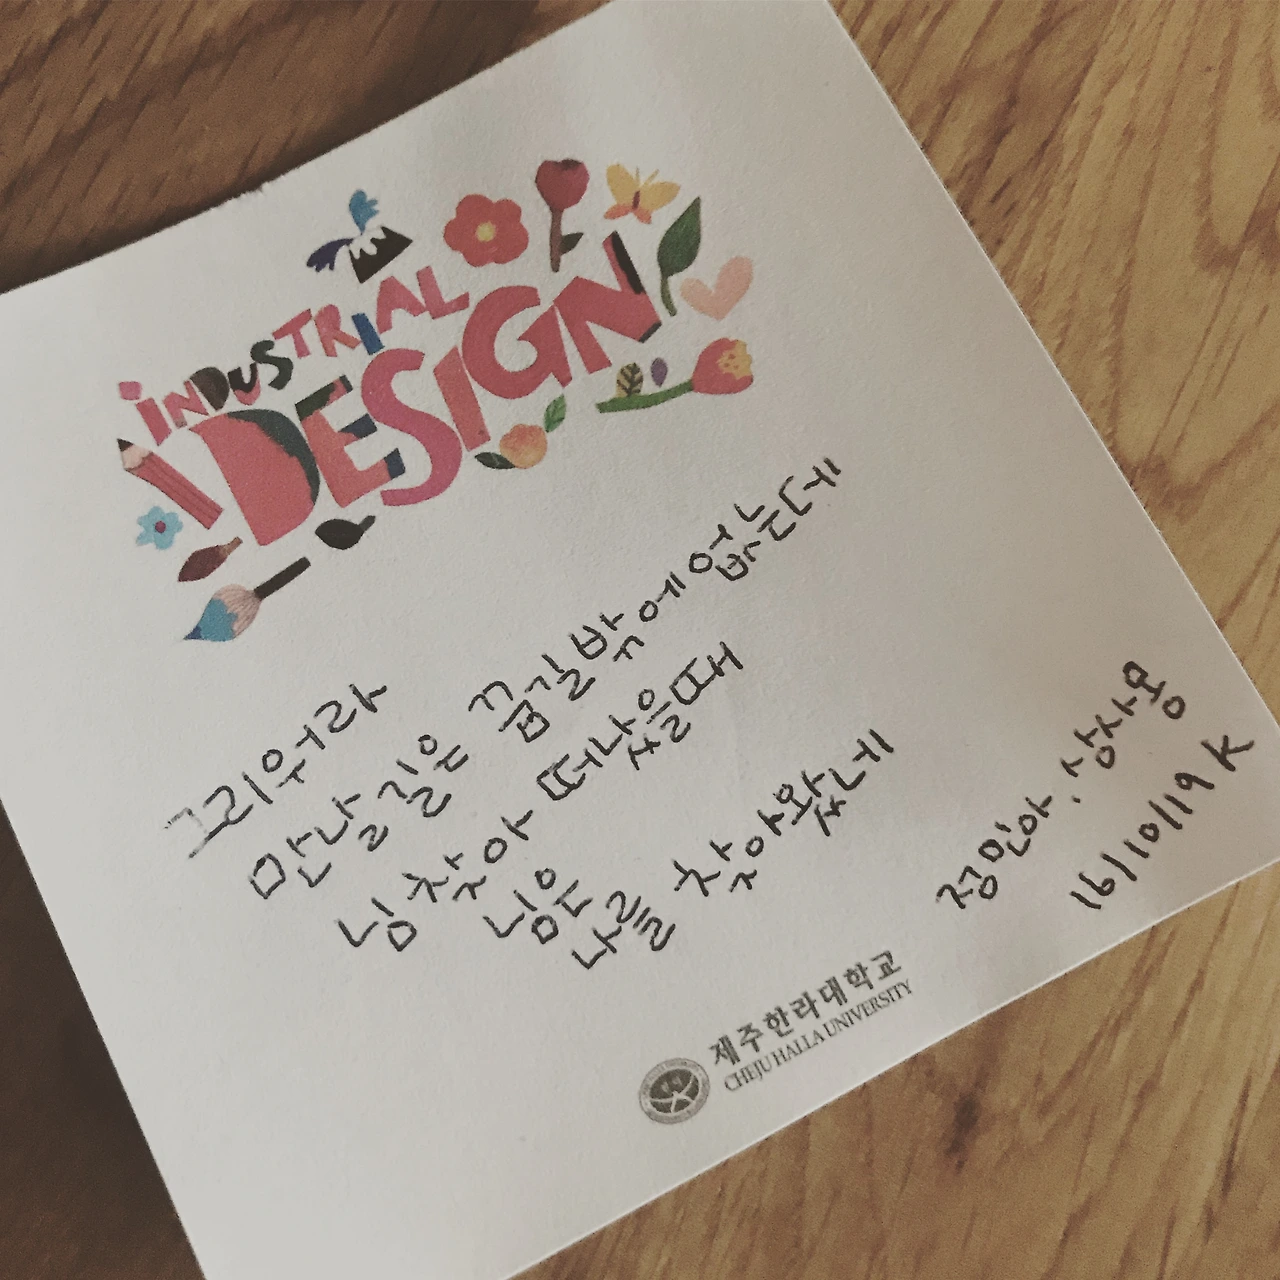 INDUSTRIAL
DESIGN
그리워라
만날길은 꿈길밖에 없는데
님찾아 떠났을때
님은
나를 찾아왔네
정민아. 상사몽
16/10/19 K
제주한라대학교
CHEJU HALLA UNIVERSITY